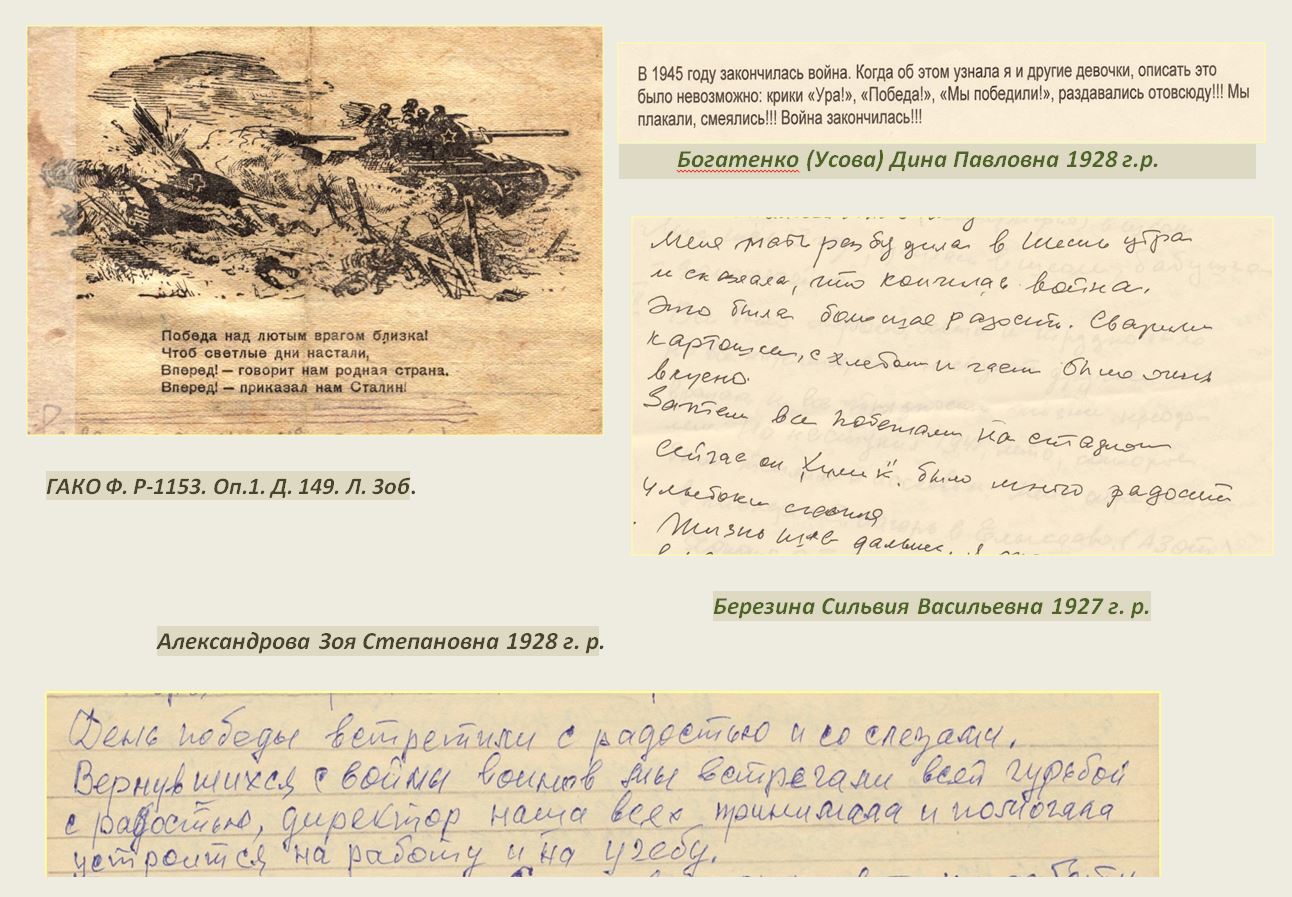 Победа над лютым врагом близка!
Чтоб светлые дни настали,
Вперед! — говорит нам родная страна.
Вперед! — приказал нам Сталин!
ГАКО Ф. Р-1153. Оп.1. Д. 149. Л. 3об.
В 1945 году закончилась война. Когда об этом узнала я и другие девочки, описать это
было невозможно: крики «Ура!», «Победа!», «Мы победили!», раздавались отовсюду!!! Мы
плакали, смеялись!!! Война закончилась!!!
Богатенко (Усова) Дина Павловна 1928 г.р.
Меня мать разбудила в шесть утра
и сказала, что кончилась война.
Это была большая радость. Сварили
картошки, с хлебом и чаем было очень
вкусно.
Затем все побежали на стадион
сейчас он „Химик". было много радости
улыбок
Жизнь шла дальше,
Березина Сильвия Васильевна 1927 г. р.
Александрова Зоя Степановна 1928 г. р.
День победы встретили с радостью и со слезами.
Вернувшихся с войны воинов мы встречали всей гурьбой
с радостью, директор наша всех принимала и помогала
устроится на работу и на учебу.